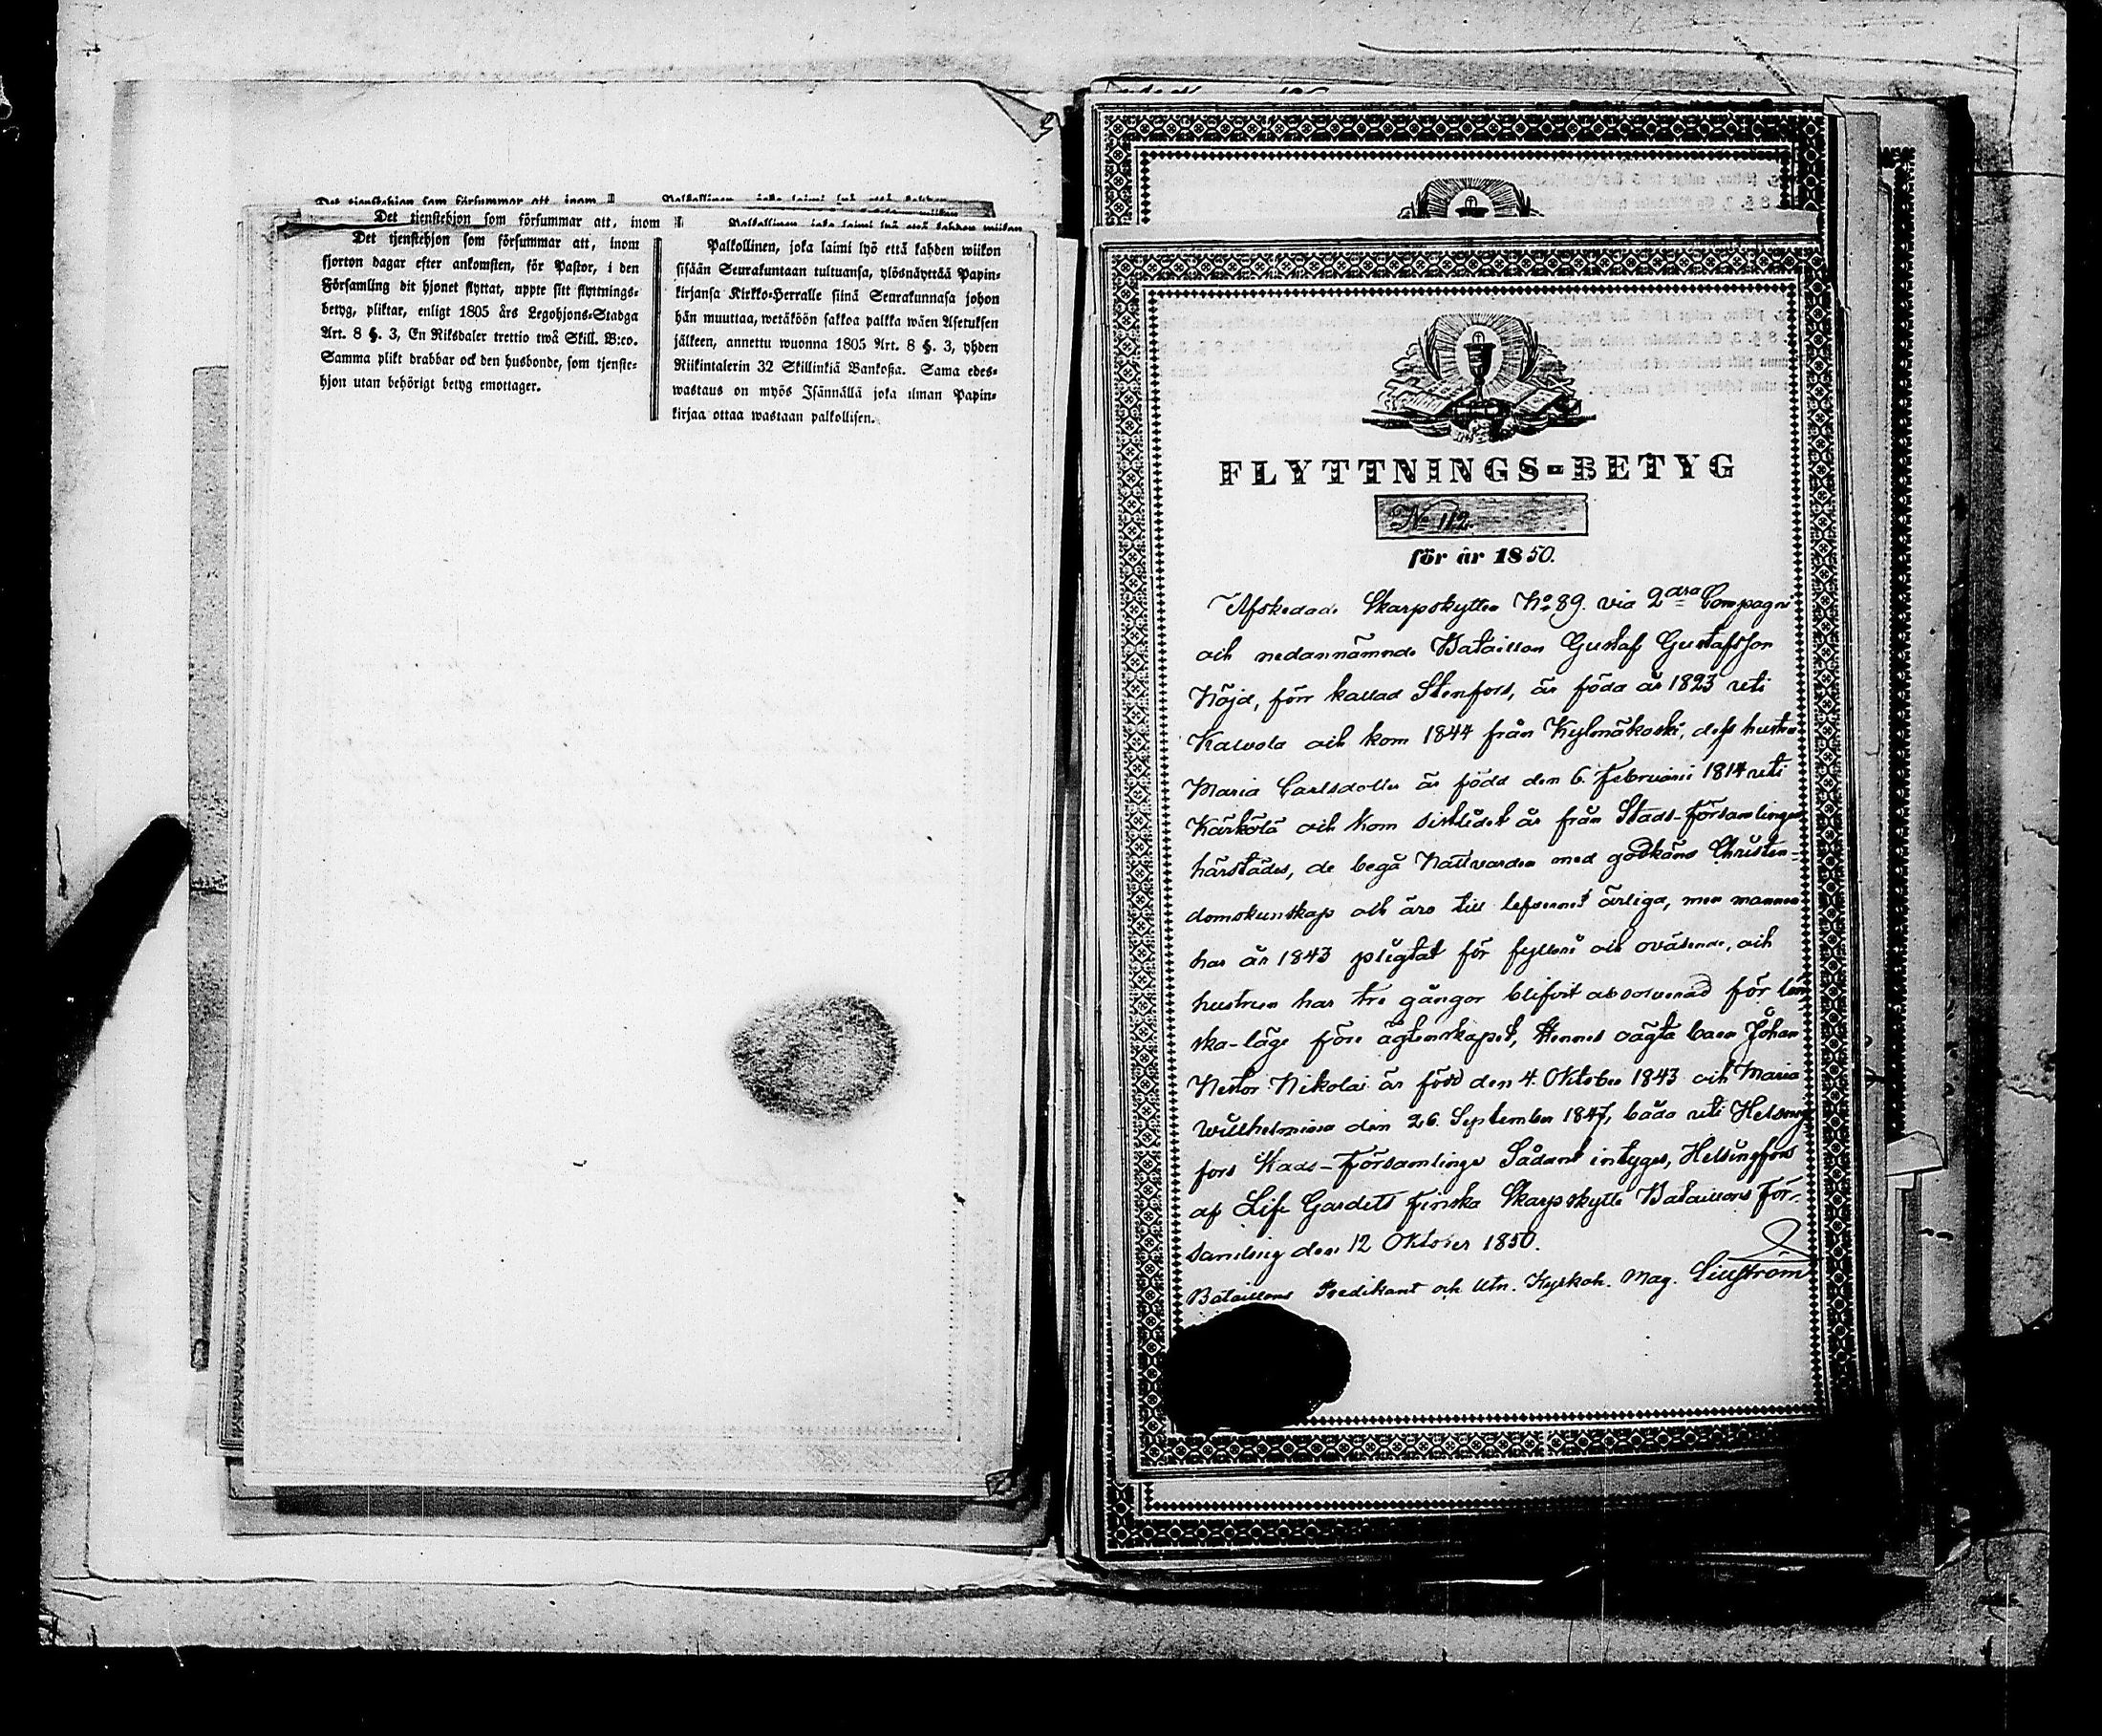 Det tjenstehjon som försummar att, inom
Palkollinen, joka laimi lyö että kahden
Det tjenstehjon som försummar att, inom
Palkollinen, joka laimi lyö että kahden wiikon
Det tjenstehjon som försummar att, inom
fjorton dagar efter ankomsten, för Pastor, i den
Församling dit hjonet flyttat, uppte sitt flyttnings-
betyg, pliktar, enligt 1805 års Legohjons-Stadga
Art. 8 §. 3, En Riksdaler trettio twå Skill. B:co.
Samma plikt drabbar ock den husbonde, som tjenste-
hjon utan behörigt betyg emottager.
Palkollinen, joka laimi lyö että kahden wiikon
sisään Seurakuntaan tultuansa, ylösnäyttää Papin-
kirjansa Kirkko-Herralle siinä Seurakunnasa johon
hän muuttaa, wetäköön sakkoa palkka wäen Asetuksen
jälkeen, annettu wuonna 1805 Art. 8 §. 3, yhden
Riikintalerin 32 Skillinkiä Bankosia. Sama edes-
wastaus on myös Isännällä joka ilman Papin-
kirjaa ottaa wastaan palkollisen.
FLYTTNINGS-BETYG
No 112.
för år 1850.
Afskedade Skarpskytten No 89. vid 2dra Compagni
och nedannämnde Bataillon Gustaf Gustafsson
Nöjd, förr kallad Stenfors, är född år 1823 uti
Kalvola och kom 1844 från Kylmäkoski, dess hustru
Maria Carlsdotter är född den 6. Februarii 1814 uti
Kärkölä och kom sistlidet år från Stads-Församlingen
härstädes, de begå Nattvarden med godkänd Christen-
domskunskap och äro till lefvernet ärliga, men mannen
har år 1843 pligtat för fylleri och oväsende, och
hustrun har tre gånger blifvit absolverad för län-
ska-läge före ägtenskapet, Hennes oägta barn Johan
Nestor Nikolai är född den 4. Oktober 1843 och Maria
Willhelmina den 26. September 1847, båda uti Helsing-
fors Stads-Församling. Sådant intygas, Helsingfors
af Life Gardets Finska Skarpskytte Bataillons För-
samling den 12 Oktober 1850.
Bataillons Predikant och Utn. Kyrkoh. Mag. Liljström